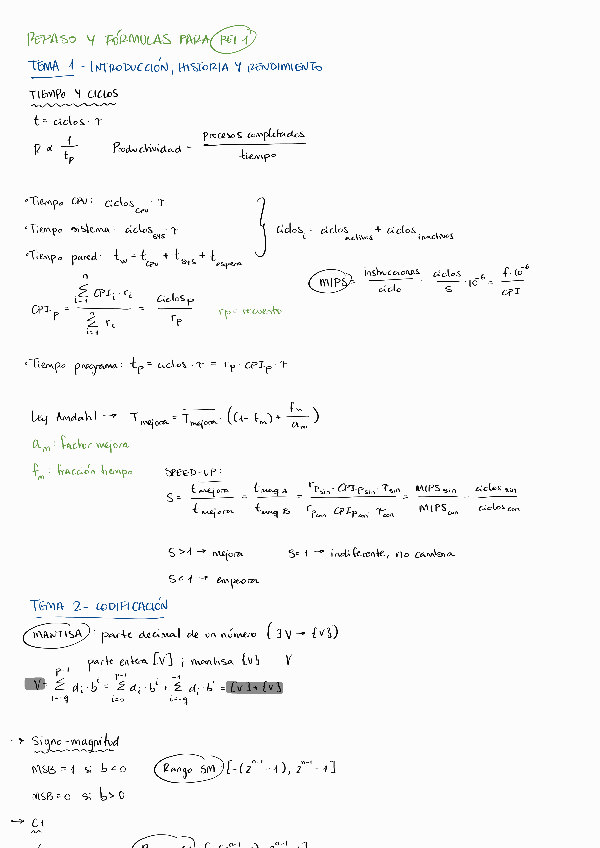 REPASO Y FÓRMULAS PARA PEI 1
TEMA 1 - INTRODUCCIÓN, HISTORIA Y RENDIMIENTO
TIEMPO Y CICLOS
t = ciclos · τ
R ∝ 1/t_p Productividad = procesos completados / tiempo
· Tiempo CPU: ciclos_CPU · τ
· Tiempo sistema: ciclos_SYS · τ ciclos_i = ciclos_activos + ciclos_inactivos
· Tiempo pared: t_w = t_CPU + t_SYS + t_espera
MIPS = instrucciones/ciclo · ciclos/s · 10^-6 = f·10^-6 / CPI
CPI_p = Σ_{i=1}^{n} CPI_i · r_i / Σ_{i=1}^{n} r_i = ciclos_p / r_p rp: recuento
· Tiempo programa: t_p = ciclos · τ = r_p · CPI_p · τ
Ley Amdahl → T_mejora = T_mejora · ((1 - f_m) + f_m/a_m)
a_m: factor mejora
f_m: fracción tiempo SPEED-UP:
S = t_mejora / t_mejora = t_maq A / t_maq B = r_p sin · CPI_p sin · τ_sin / r_p con · CPI_p con · τ_con = MIPS_sin / MIPS_con · ciclos sin / ciclos con
S > 1 → mejora S = 1 → indiferente, no cambia
S < 1 → empeora
TEMA 2 - CODIFICACIÓN
MANTISA: parte decimal de un número (∃V → {V})
parte entera [V] ; mantisa {V} V
V = Σ_{i=-q}^{p-1} d_i · b^i = Σ_{i=0}^{p-1} d_i · b^i + Σ_{i=-q}^{-1} d_i · b^i = [V] + {V}
→ Signo-magnitud
MSB = 1 si b < 0 Rango SM: [-(2^{n-1} - 1), 2^{n-1} - 1]
MSB = 0 si b > 0
→ C1